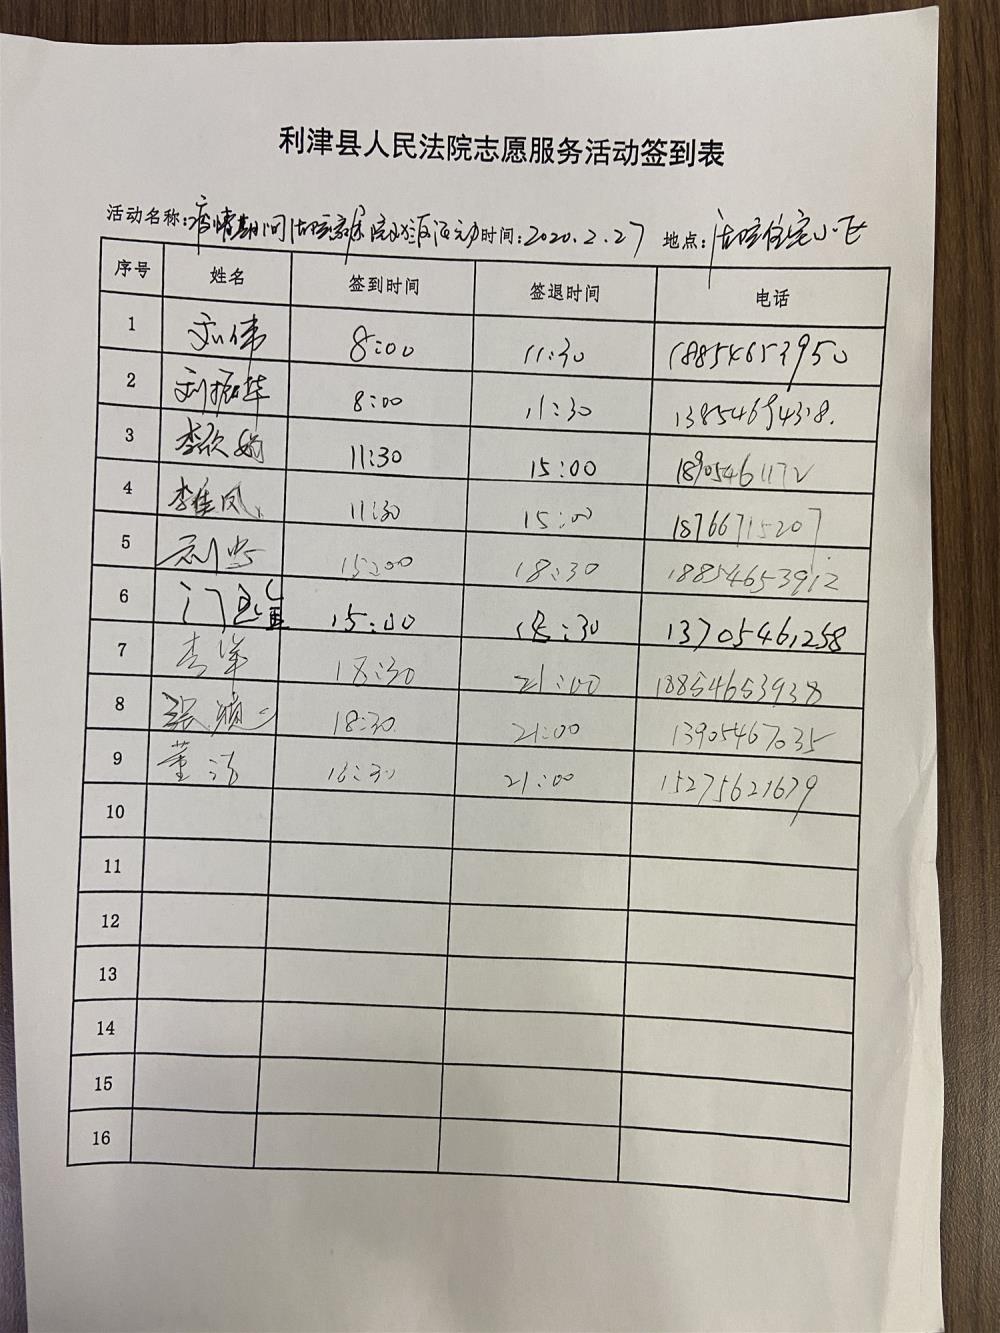 利津县人民法院志愿服务活动签到表
活动名称:疫情期间法院家属院 活动 时间:2020.2.27 地点:法院住宅小区
序号 姓名 签到时间 签退时间 电话
1 刘伟 8:00 11:30 18854653950
2 刘振华 8:00 11:30 13854694318.
3 李欣娟 11:30 15:00 18905461172
4 李佳凤 11:30 15:00 18766715207
5 15:00 18:30 18854653912
6 门 15:00 18:30 13705461258
7 李军 18:30 21:00 18854653938
8 张 18:30 21:00 13905467035
9 董洁 18:30 21:00 15275621679
10
11
12
13
14
15
16